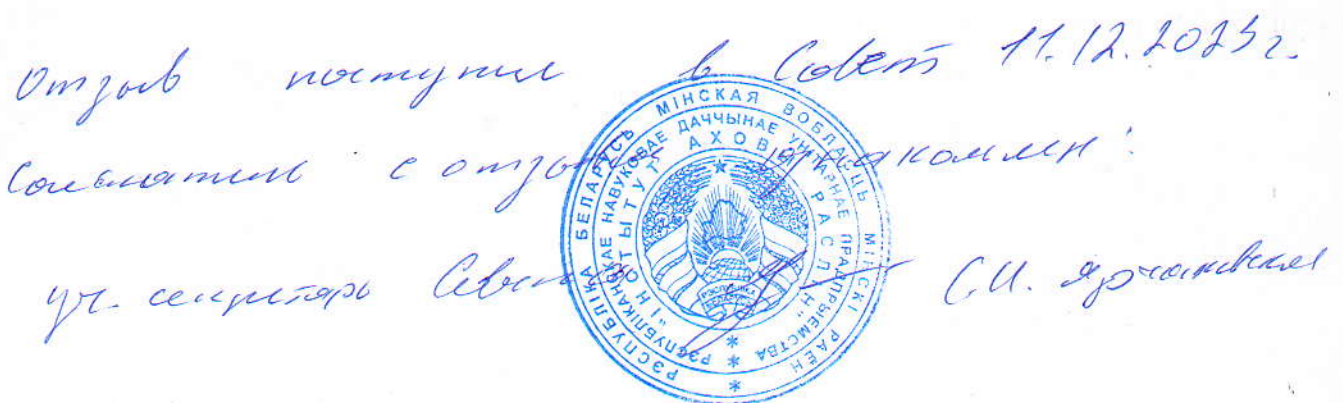 Отзыв поступил в Совет 11.12.2023г.
Соискатель с отзывом ознакомлен:
уч. секретарь Совета С.И. Ярчаковская
РЭСПУБЛІКА БЕЛАРУСЬ МІНСКАЯ ВОБЛАСЦЬ МІНСКІ РАЁН
РЭСПУБЛІКАНСКАЕ НАВУКОВАЕ ДАЧЧЫНАЕ УНІТАРНАЕ ПРАДПРЫЕМСТВА
"ІНСТЫТУТ АХОВЫ РАСЛІН"